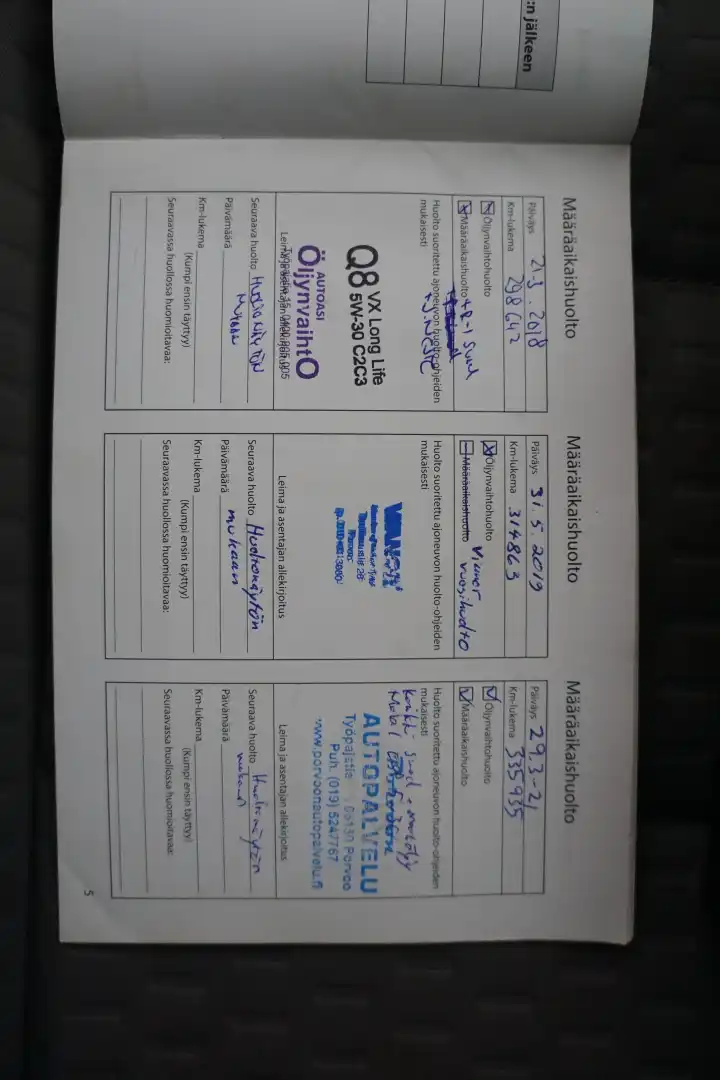 :n jälkeen
Määräaikaishuolto
Päiväys 21.3.2018
Km-lukema 298642
Öljynvaihtohuolto
Määräaikaishuolto
Huolto suoritettu ajoneuvon huolto-ohjeiden
mukaisesti
Q8 VX Long Life
5W-30 C2C3
AUTOASI
ÖljynvaihtO
Leima ja asentajan allekirjoitus
Seuraava huolto Huoltonäytön
Päivämäärä mukaan
Km-lukema
(Kumpi ensin täyttyy)
Seuraavassa huollossa huomioitavaa:
Määräaikaishuolto
Päiväys 31.5.2019
Km-lukema 314863
Öljynvaihtohuolto
Määräaikaishuolto vuosihuolto
Huolto suoritettu ajoneuvon huolto-ohjeiden
mukaisesti
Porvoo
Leima ja asentajan allekirjoitus
Seuraava huolto Huoltonäytön
Päivämäärä mukaan
Km-lukema
(Kumpi ensin täyttyy)
Seuraavassa huollossa huomioitavaa:
Määräaikaishuolto
Päiväys 29.3-21
Km-lukema 335935
Öljynvaihtohuolto
Määräaikaishuolto
Huolto suoritettu ajoneuvon huolto-ohjeiden
mukaisesti
Kaikki suod. + moot.öljy
Mobil 1
AUTOPALVELU
Työpajatie 06150 Porvoo
Puh. (019) 5247767
www.porvoonautopalvelu.fi
Leima ja asentajan allekirjoitus
Seuraava huolto Huoltonäytön
Päivämäärä mukaan
Km-lukema
(Kumpi ensin täyttyy)
Seuraavassa huollossa huomioitavaa:
5